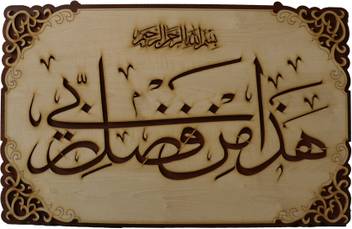 بسم الله الرحمن الرحيم
هَذَا مِنْ فَضْلِ رَبِّي